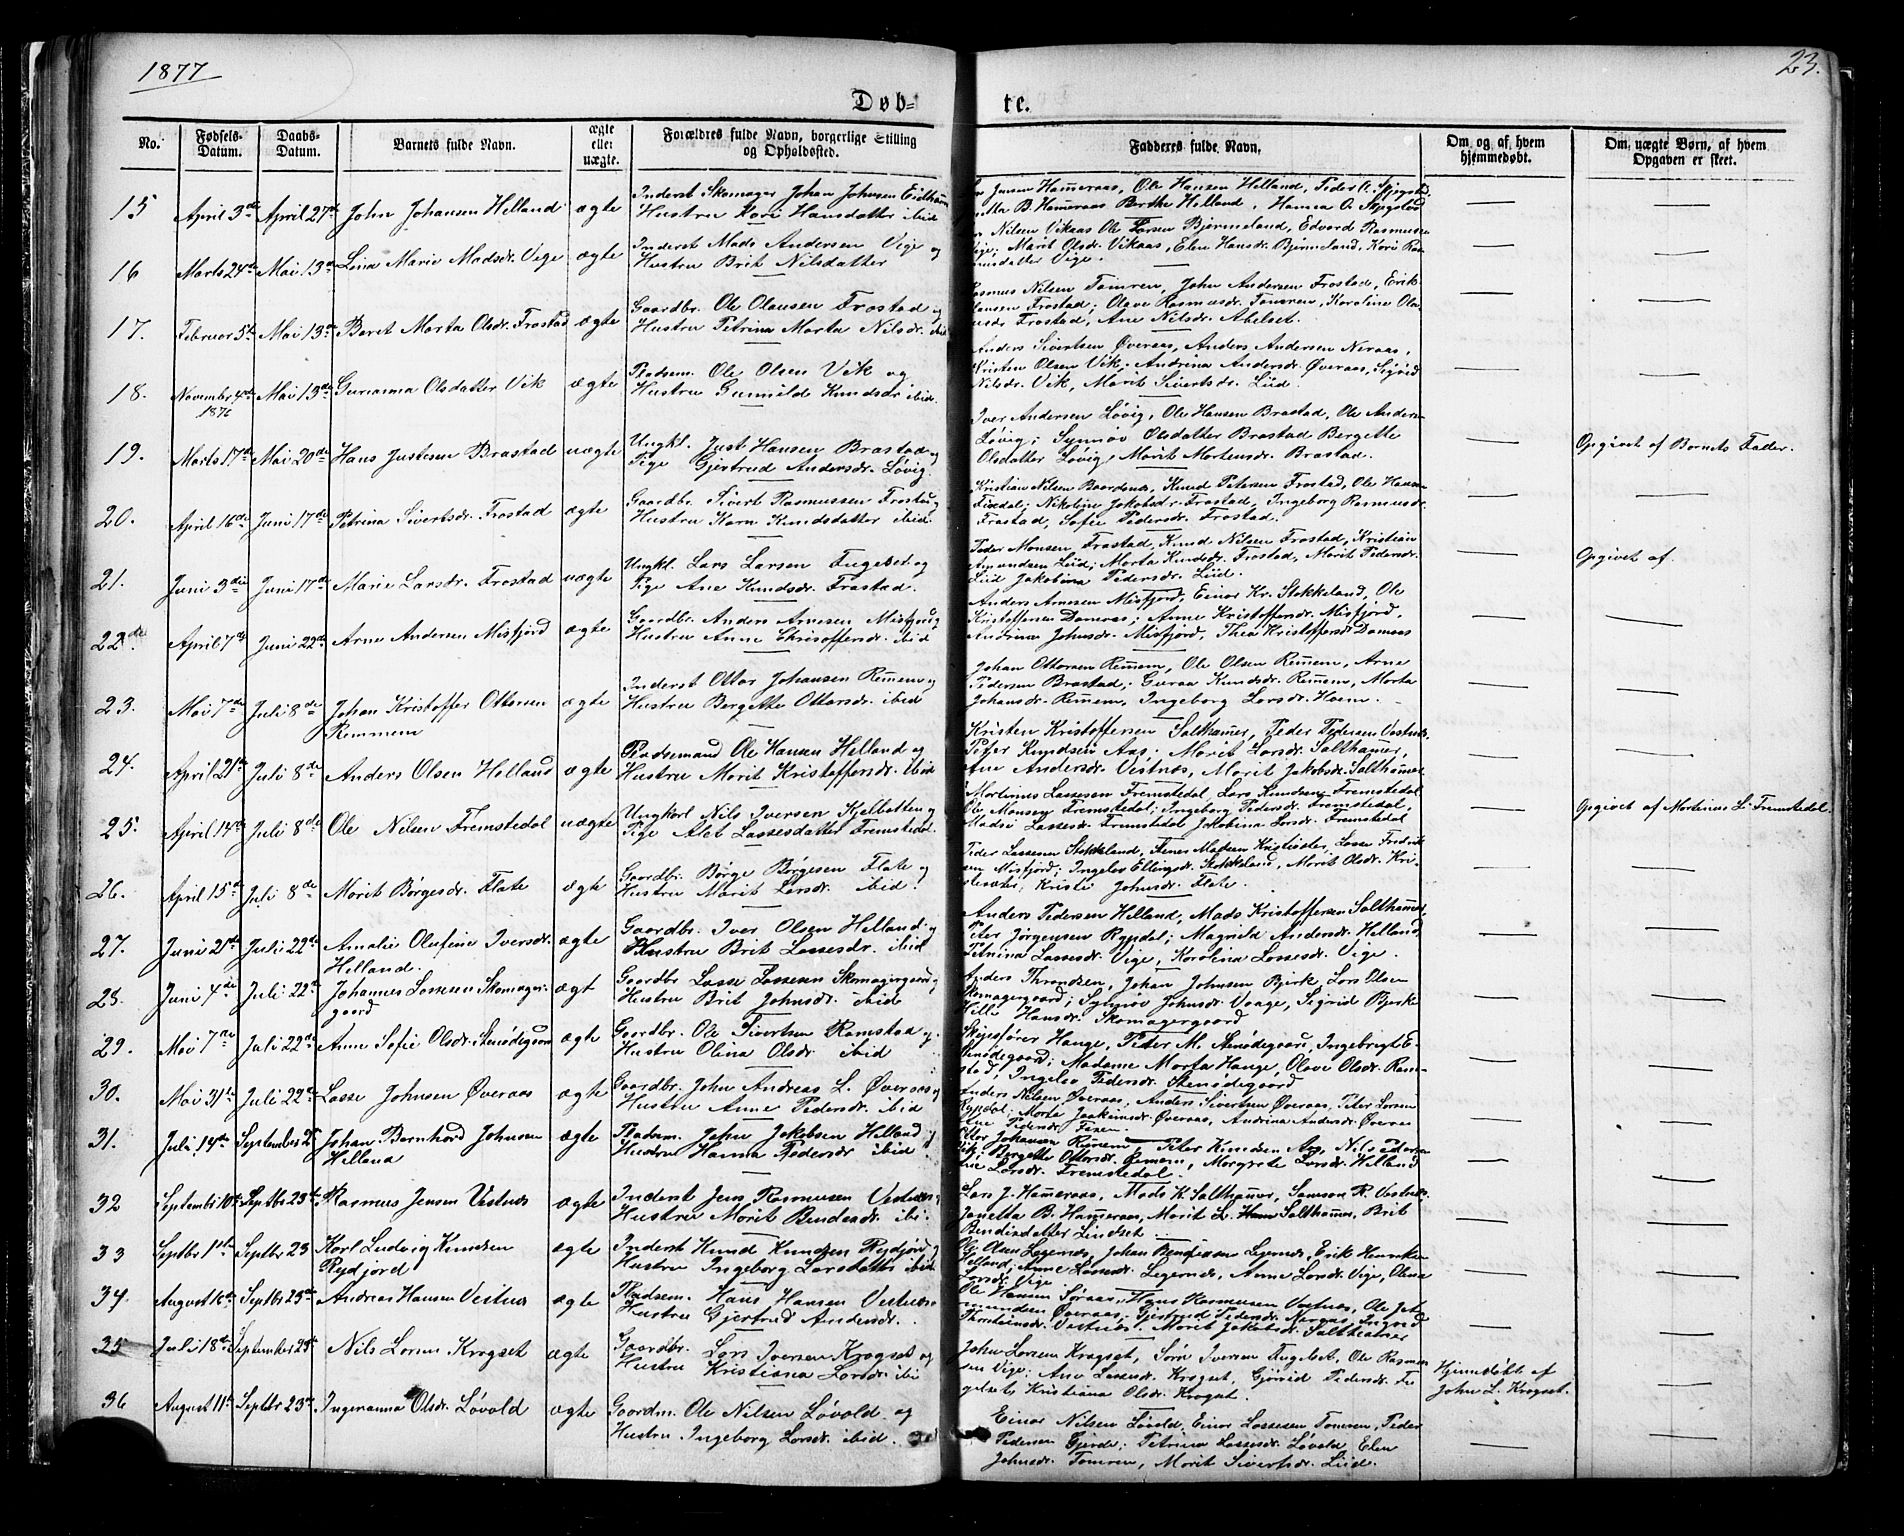 1877
23.
Døb-
te.
No.
Fødsels-
Datum.
Daabs-
Datum.
Barnets fulde Navn.
ægte
eller
uægte.
Forældres fulde Navn, borgerlige Stilling
og Opholdssted.
Fadderes fulde Navn.
Om og af hvem
hjemmedøbt.
Om uægte Børn, af hvem
Opgaven er skeet.
15 April 3de April 27de John Johansen Helland ægte
Inderst Skomager Johan Johnsen Eidhamn
Hustru Kari Hansdatter ibid
Jensen Hammeraas, Ole Hansen Helland, Peder A. Skjegstad
B. Hammeraas Berthe Helland, Hanna O. Skjegstad
16 Marts 24de Mai 13de Lina Marie Madsdr. Vige ægte
Inderst Mads Andersen Vige og
Hustru Brit Nilsdatter
Nilsen Vikaas Ole Larsen Bjørmeland, Edvard Rasmussen
Vige; Marit Olsdr. Vikaas, Elen Hansdr. Bjørmeland, Kari Ras-
musdatter Vige.
17. Februar 5te Mai 13de Berit Marta Olsdr. Frostad ægte
Gaardbr. Ole Olausen Frostad og
Hustru Petrina Marta Nilsdr. ibid
Rasmus Nilsen Tomren, John Andersen Frostad, Erik
Hansen Frostad; Olave Rasmusdr. Tomren, Karoline Ola-
usdr. Frostad, Ane Nilsdr. Abelset.
18. Novembr 4de Mai 13de Gurianna Olsdatter Vik ægte
1876
Pladsem. Ole Olsen Vik og
Hustru Gunnilde Knudsdr ibid.
Anders Sivertsen Øveraas, Anders Andersen Neraas,
Kristen Olsen Vik; Andrina Andersdr. Øveraas, Sigrid
Nilsdr. Vik, Marit Sivertsdr. Liid.
19. Marts 17de Mai 20de Hans Justesen Brastad uægte
Ungkl. Just Hansen Brastad og
Pige Gjertrud Andersdr. Løvig.
Iver Andersen Løvig, Ole Hansen Brastad, Ole Anders.
Løvig; Synnøv Olsdatter Brastad Bergette
Olsdatter Løvig, Marit Mortensdr. Brastad.
Opgivet af Barnets Fader.
20. April 16de Juni 17de Petrina Sivertsdr. Frostad ægte
Gaardbr. Sivert Rasmussen Frostad og
Hustru Karn Knudsdatter ibid
Kristian Nilsen Baardsnes, Knud Petersen Frostad, Ole Hansen
Fixdal; Nikoline Jakobsdr. Frostad, Ingeborg Rasmusdr.
Frostad, Sofie Pedersdr. Frostad.
21. Juni 3die Juni 17de Marie Larsdr. Frostad uægte
Ungkl. Lars Larsen Fugelset og
Pige Ane Knudsdr. Frostad.
Peder Monsen Frostad, Knud Nilsen Frostad, Kristian
Amundsen Liid; Marta Knudsdr. Frostad, Marit Pedersdr.
Liid Jakobina Pedersdr. Liid.
Opgivet af
22de. April 7de Juni 22de Arne Andersen Misfjord ægte
Gaardbr. Anders Arnesen Misfjord og
Hustru Anne Chrisoffersdr. ibid
Anders Arnesen Misfjord, Einar Kr. Stokkeland, Ole
Kristoffersen Damaas; Anne Kristoffersdr. Misfjord,
Andrina Johnsdr. Misfjord, Thea Kristoffersdr Damaas
23. Mai 7de Juli 8de Johan Kristoffer Ottersen ægte
Remmem
Inderst Ottar Johansen Remmem og
Hustru Bergette Ottarsdr. ibid
Johan Ottarsen Remmem, Ole Olsen Remmem, Arne
Pedersen Brastad; Guraa Knudsdr. Remmem, Marta
Johansdr. Remmem, Ingeborg Larsdr. Hoem.
24. April 21de Juli 8de Anders Olsen Helland ægte
Pladsemand Ole Hansen Helland og
Hustru Marit Kristoffersdr. ibid
Kristen Kristoffersen Salthammer, Peder Pedersen Vestnes,
Peter Knudsen Aas; Marit Larsdr. Salthammer,
Ane Andersdr. Vestnes, Marit Jakobsdr. Salthammer
25. April 14de Juli 8de Ole Nilsen Fremstedal uægte
Ungkarl Nils Iversen Kjelbotten og
Pige Alet Lassesdatter Fremstedal
Martinus Lassesen Fremstedal, Lars Knudsen Fremstedal
Ole Monsen Fremstedal; Ingeborg Pedersdr. Fremstedal,
Madsi Lassesdr. Fremstedal Jakobina Larsdr. Fremstedal
Opgivet af Martinus L. Fremstedal.
26. April 15de Juli 8de Marit Børgesdr. Flate ægte
Gaardbr. Børge Børgesen Flate og
Hustru Marit Larsdr. ibid.
Peder Lassesen Stokkeland, Madsen Lasse Fredrik-
sen Misfjord; Ingeløv Ellingsdr. Stokkeland, Marit Olsdr. Kri-
Kristi Johnsdr. Flate.
27. Juni 21de Juli 22de Amalie Olufine Iversdr. ægte
Helland.
Gaardbr. Iver Olsen Helland og
Hustru Brit Lassesdr. ibid
Anders Pedersen Helland, Mads Kristoffersen Salthammer,
Peter Jørgensen Rypdal; Magnild Andersdr. Helland,
Petrina Lassesdr. Vige, Karolina Lassesdr. Vige.
28. Juni 4de Juli 22de Johannes Lassesen Skomager- ægt
gaard
Gaardbr. Lasse Lassesen Skomagergaard og
Hustru Brit Johnsdr. ibid
Anders Throndsen, Johan Johnsen Bjerk, Lars Olsen
Skomagergaard; Synnøv Johnsdr. Vaage, Sigrid Bjerke
Hansdr. Skomagergaard
29. Mai 7de Juli 22de Anne Sofie Olsdr. Stenødegaard ægte
Gaardbr. Ole Sivertsen Ramstad og
Hustru Olina Olsdr. ibid
Skipsfører Hauge, Peder M. Stenødegaard, Ingebrigt E.
Stenødegaard; Madame Marta Hauge, Olave Olsdr. Ram-
stad, Ingeløv Pedersdr. Stenødegaard
30. Mai 31te Juli 22de Lasse Johnsen Øveraas ægte
Gaardbr. John Andreas L. Øveraas og
Hustru Anne Pedersdr. ibid
Anders Nilsen Øveraas, Anders Sivertsen Øveraas, Peter Larsen
Rypdal; Marta Joakimsdr. Øveraas, Andrina Andersdr. Øveraas
Pedersdr.
31. Juli 14de September Johan Bernhard Johnsen ægte
Helland
Pladsm. John Jakobsen Helland og
Hustru Hanna Pedersdr ibid
Ottar Johansen Remmem Peter Knudsen Aas, Nils Pedersen
Vik; Bergette Ottarsdr. Remmem, Margrete Larsdr. Helland
Larsdr. Fremstedal.
32 Septembr 10de Septbr 23de Rasmus Jensen Vestnes ægte
Inderst Jens Rasmussen Vestnes og
Hustru Marit Bendixdr. ibi.
Lars J. Hammeraas, Mads K. Salthammer, Samson R. Vestnes.
Janetta B. Hammeraas, Marit L. Salthammer, Brit
Bendixdatter Lindset.
33 Septbr 1ste Septbr 23 Karl Ludvig Knudsen ægte
Rydjord
Inderst Knud Knudsen Rydjord og
Hustru Ingeborg Larsdatter ibid
Ole Olsen Legernes, Johan Bendixsen Legernes, Erik Henriksen
Helland; Anne Lassesdr. Legernes, Anne Larsdr. Vige, Olena
Larsdr. Vige
34. August 16de Septbr 23de Andreas Hansen Vestnes ægte
Pladsem. Hans Hansen Vestnes
Hustru Gjertrud Andersdr.
Ole Hansen Søraas, Hans Rasmussen Vestnes, Ole Jet-
mundsen Øveraas; Gjertrud Pedersdr. Neraas, Ingrid
Thorsteinsdr. Vestnes. Marit Jakobsdr. Salthammer
35 Juli 18de September 23de Nils Larsen Krogset ægte
Gaardbr. Lars Iversen Krogset og
Hustru Kristiana Larsdr. ibi
John Larsen Krogset, Søren Iversen Fugelset, Ole Rasmus-
sen Vige; Ane Lassesdr. Krogset, Gjørrid Pedersdr. Fu-
gelset, Kristiana Olsdr. Krogset.
Hjemmedøbt af
John L. Krogset.
36 August 11te Septbr 23de Ingeranna Olsdr. Løvold ægte
Gaardm. Ole Nilsen Løvold og
Hustru Ingeborg Larsdr. ibid.
Einar Nilsen Løvold, Einar Lassesen Tomren, Peder
Pedersen Gjerde; Petrina Lassesdr. Løvold, Elen
Johnsdr. Tomren, Marit Sivertsdr. Liid.